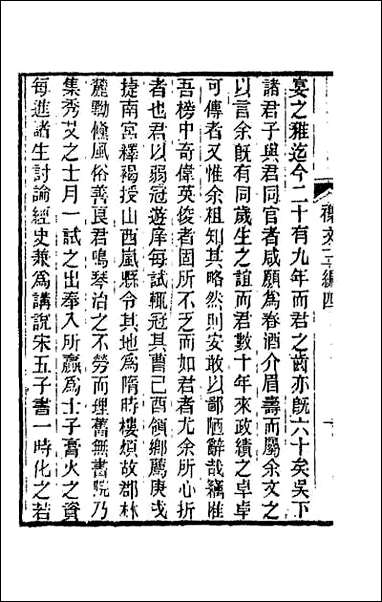 宴之雅迄今二十有九年而君之齒亦旣六十矣吳下
諸君子與君同官者咸願爲春酒介眉壽而屬余文之
以言余旣有同歲生之誼而君數十年來政績之卓卓
可傳者又惟余粗知其略然則安敢以鄙陋辭哉竊惟
吾榜中奇偉英俊者固所不乏而如君者尤余所心折
者也君以弱冠遊庠每試輒冠其曹己酉領鄉薦庚戌
捷南宮釋褐授山西嵐縣令其地爲隋時樓煩故郡林
麓勬偹風俗善良君鳴琴治之不勞而理舊無書院乃
集秀艾之士月一試之出奉入所贏爲士子膏火之資
每進諸生討論經史兼爲講說宋五子書一時化之若
文二編四